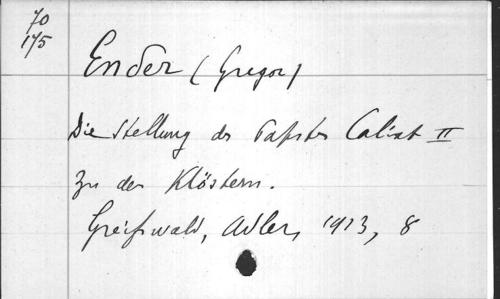 70
175
Ender (Gregor)
Die Stellung des Papstes Calixt II
zu den Klöstern.
Greifswald, Adler, 1913, 8